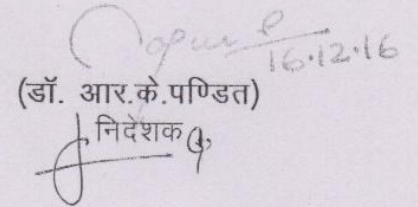 16.12.16
(डॉ. आर.के.पण्डित)
निदेशक